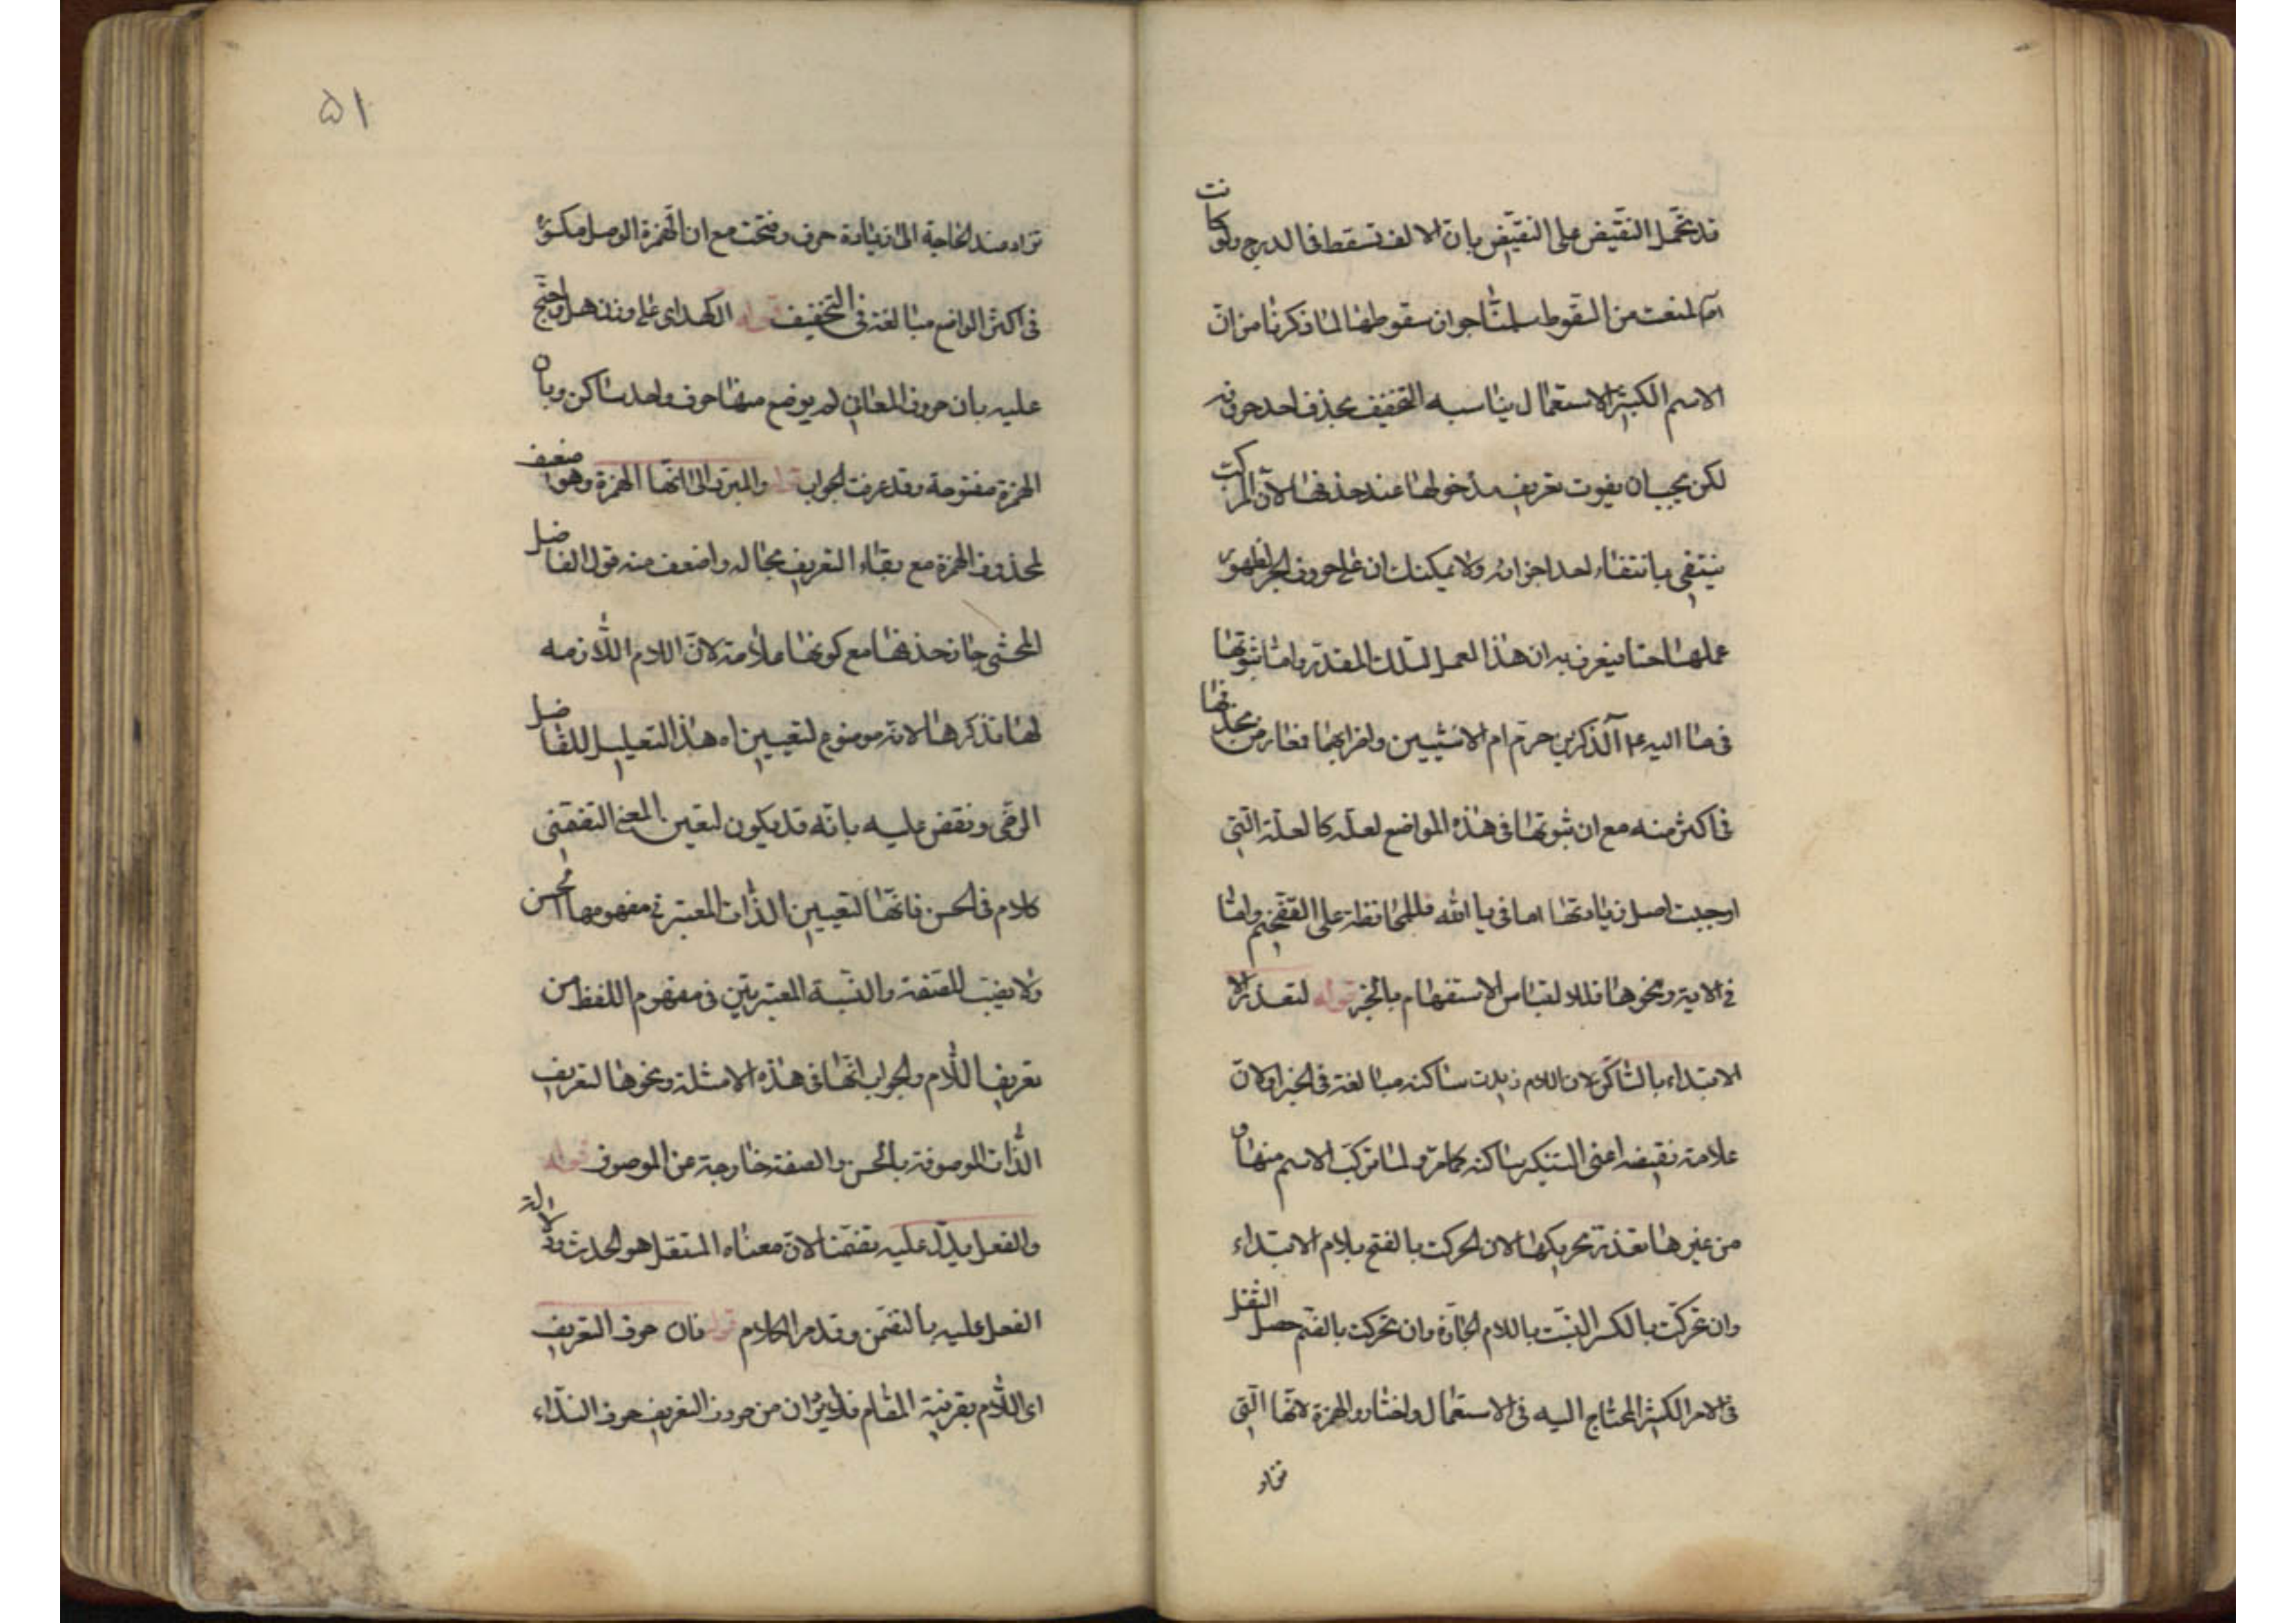 قد تحمل النقيض على النقيض بان الالف تسقط فى الدرج ولو كانت
لمنعت من السقوط سلمنا جواز سقوطها لما ذكرنا من ان
الاسم الكثير الاستعمال يناسبه التخفيف بحذف احد حروفه
لكن يجب ان يفوت تعريف مدخولها عند حذفها لان المركب
ينتفى بانتفاء احد اجزائه ولا يمكنك ان على حروف الجر لظهور
عملها حتى يعرف به ان هذا العمل لتلك المقدر واما ثبوتها
فى آلذكرين حرم ام الانثيين واضرابهما فعارض بحذفها
فى اكثر منه مع ان ثبوتها فى هذه المواضع لعله كالعلة التى
اوجبت اصل زيادتها اما فى يا الله فللمحافظة على التفخيم واما
فى الاية ونحوها فلالتباس الاستفهام بالخبر قوله لتعذر
الابتداء بالساكن لان اللام زيدت ساكنة مبالغة فى الخبر اولان
علامة نقيضه اعنى التنكير ساكنه كما مر ولما تركب الاسم منها و
من غيرها تعذر تحريكها لان الحركت بالفتح بلام الابتداء
وان تحركت بالكسر التبست باللام الجارة وان تحركت بالضم حصل الثقل
فى الامر الكثير المحتاج اليه فى الاستعمال واختاروا الهمزة لانها التى
تزاد
۵۱
تزاد عند الحاجة الى زيادة حرف وفتحت مع ان الهمزة الوصل مكسورة
فى اكثر المواضع مبالغة فى التخفيف قوله ال كهل اى على وزن هل واحتج
عليه بان حروف المعانى لم يوضع منها حرف واحد ساكن وبان
الهمزة مفتوحة وقد عرفت الجواب قوله والمبرد الى انها الهمزة وهو اضعف
لحذف الهمزة مع بقاء التعريف بحاله واضعف منه قول الفاضل
المحشى جاز حذفها مع كونها علامة لان اللام اللازمه
لها تذكرها لانه موضوع لتعيين اه هذا التعليل للفاضل
الرضى ونقض عليه بانه قد يكون لتعين المعنى التضمنى
كلام فى الحسن فانها لتعيين الذات المعتبر فى مفهومها
ولا يعين للصفة والنسبة المعتبرتين فى مفهوم اللفظ من
تعريف اللام والجواب انها فى هذه الامثلة ونحوها لتعريف
الذات الموصوفة بالحسن والصفة خارجة عن الموصوف قوله
والفعل يدل عليه تضمنا لان معناه المستقل هو الحدث ودلالة
الفعل عليه بالتضمن وقد مر الكلام قوله فان حرف التعريف
اى اللام بقرينة المقام فلا يرد ان من حروف التعريف حرف النداء